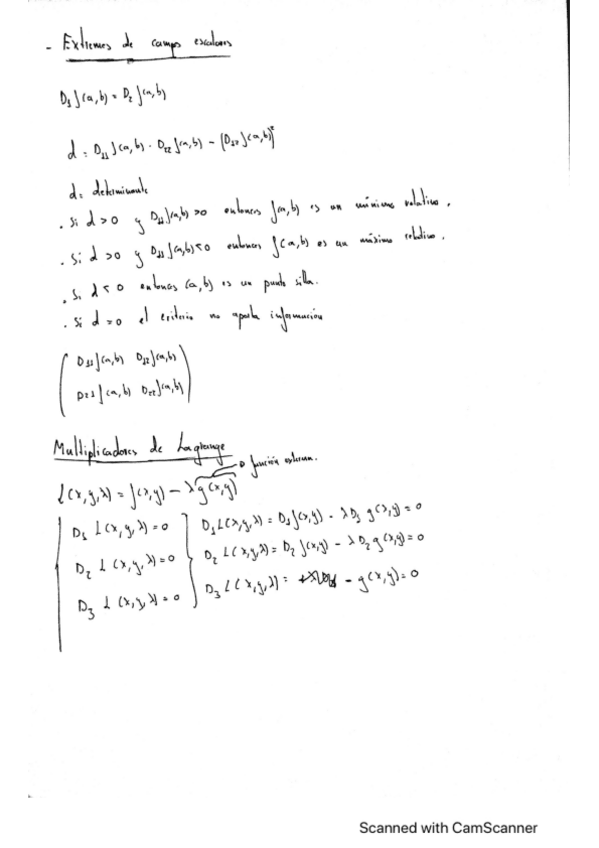 - Extremos de campos escalares
D₁ f(a,b) = D₂ f(a,b)
d = D₁₁ f(a,b) · D₂₂ f(a,b) - (D₁₂ f(a,b))²
d = determinante
. Si d > 0 y D₁₁ f(a,b) > 0 entonces f(a,b) es un mínimo relativo.
. Si d > 0 y D₁₁ f(a,b) < 0 entonces f(a,b) es un máximo relativo.
. Si d < 0 entonces (a,b) es un punto silla.
. Si d = 0 el criterio no aporta información
( D₁₁ f(a,b) D₂₂ f(a,b)
D₂₁ f(a,b) D₂₂ f(a,b) )
Multiplicadores de Lagrange
función
L(x,y,λ) = f(x,y) - λ g(x,y)
D₁ L(x,y,λ) = 0 } D₁ L(x,y,λ) = D₁ f(x,y) - λ D₁ g(x,y) = 0
D₂ L(x,y,λ) = 0 } D₂ L(x,y,λ) = D₂ f(x,y) - λ D₂ g(x,y) = 0
D₃ L(x,y,λ) = 0 } D₃ L(x,y,λ) = - g(x,y) = 0
Scanned with CamScanner